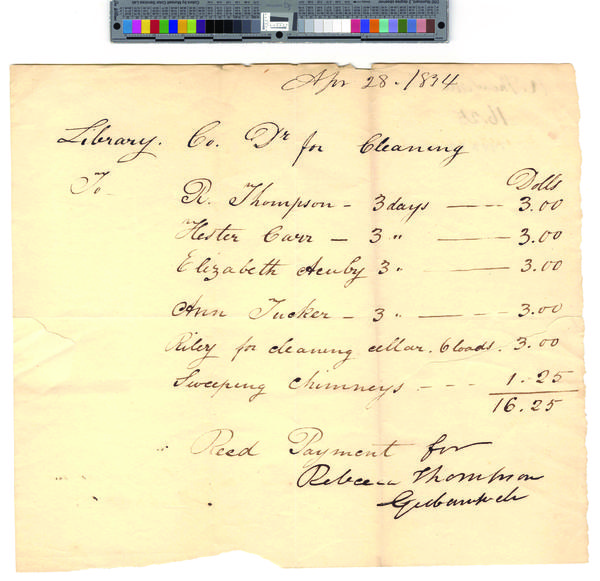 Apr 28. 1834
Library. Co. Dr for Cleaning
Dolls
To R. Thompson - 3 days - 3.00
Hester Carr - 3 " - 3.00
Elizabeth 3 " - 3.00
Ann Tucker - 3 " - 3.00
Riley for cleaning cellar. 6 loads. 3.00
Sweeping chimneys - - - 1.25
16.25
Recd Payment for
Rebecca Thompson